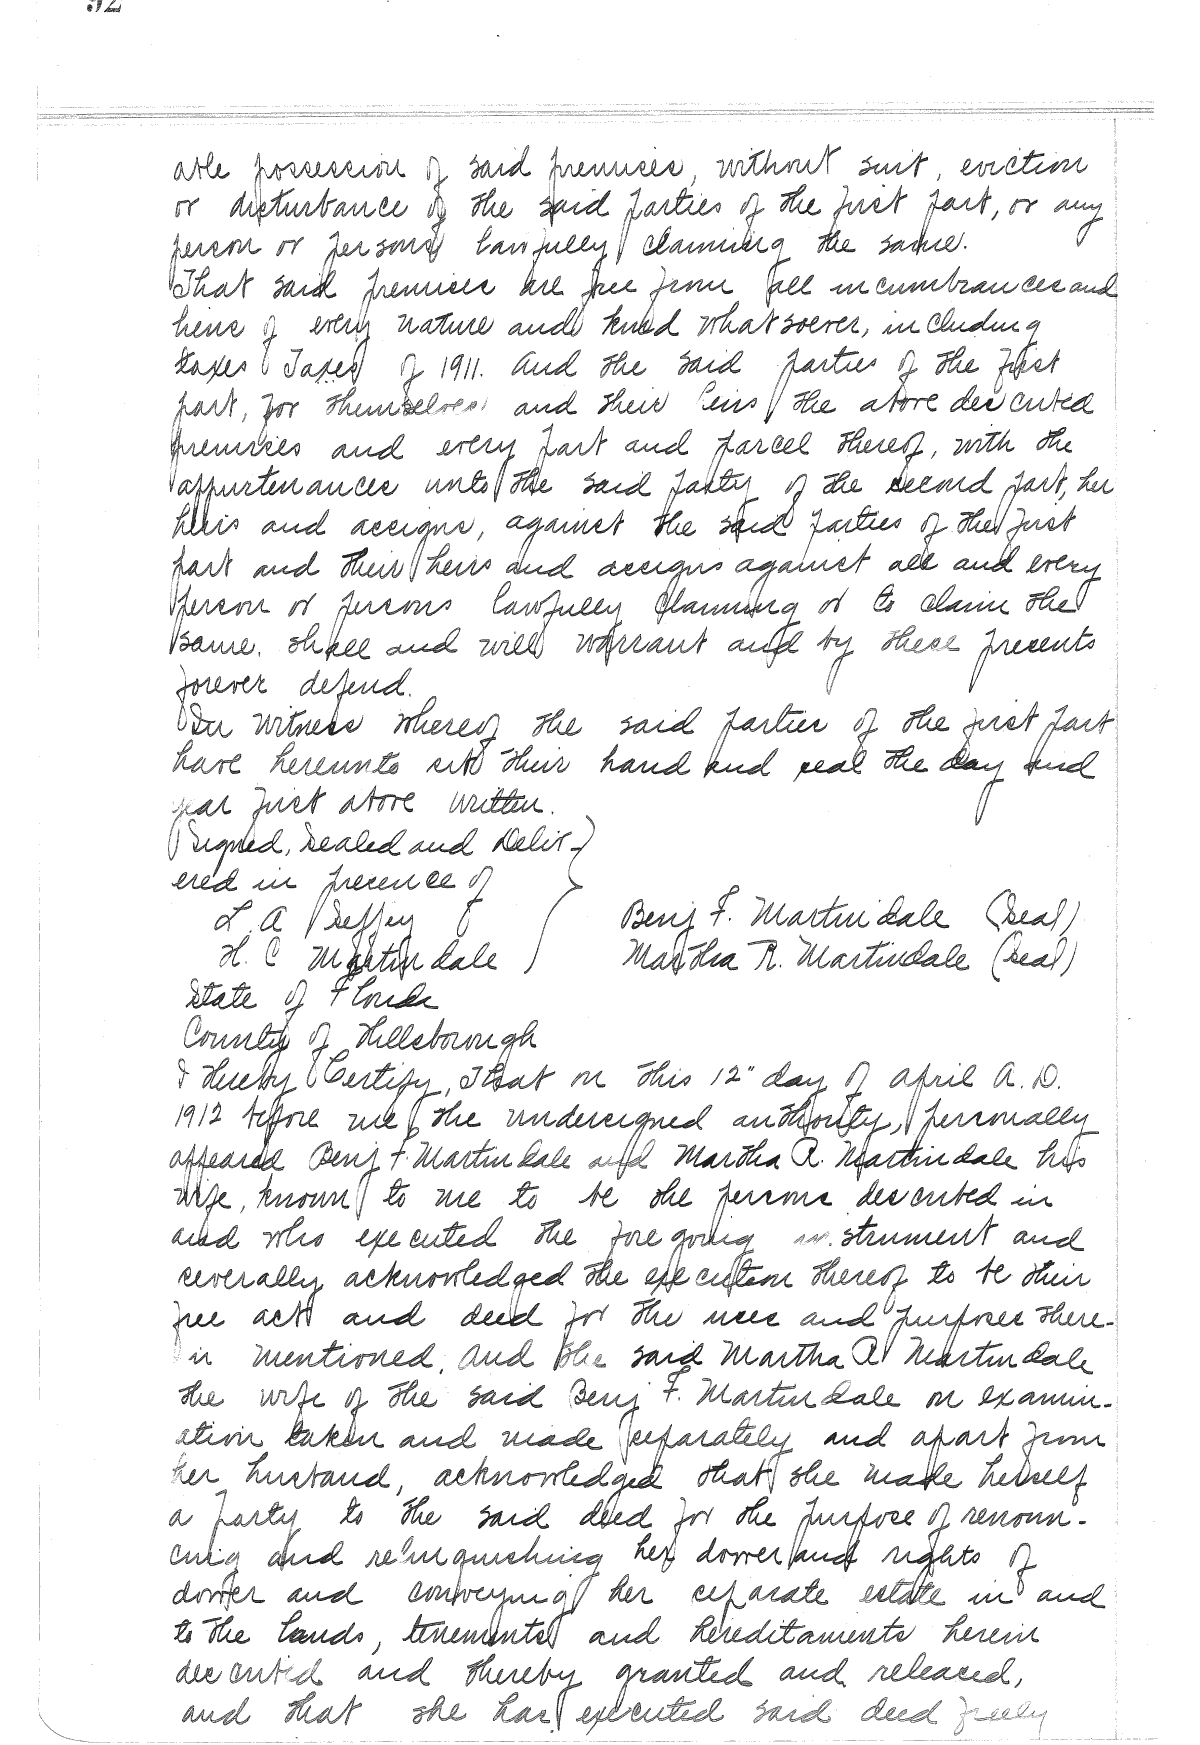 able possession of said premises, without suit, eviction
or disturbance of the said parties of the first part, or any
person or persons lawfully claiming the same.
That said premises are free from all incumbrances and
liens of every nature and kind whatsoever, including
taxes Taxes of 1911. And the said parties of the first
part, for themselves and their heirs the above described
premises and every part and parcel thereof, with the
appurtenances unto the said party of the second part, her
heirs and assigns, against the said parties of the first
part and their heirs and assigns against all and every
person or persons lawfully claiming or to claim the
same. shall and will warrant and by these presents
forever defend.
In Witness whereof the said parties of the first part
have hereunto set their hand and seal the day and
year first above written.
Signed, Sealed and Deliv-
ered in presence of
L. A.
H. C Martindale
Benj F. Martindale (Seal)
Martha R. Martindale (Seal)
State of Florida
County of Hillsborough
I Hereby Certify, That on this 12" day of April A. D.
1912 before me the undersigned authority, personally
appeared Benj F. Martindale and Martha R. Martindale his
wife, known to me to be the persons described in
and who executed the foregoing instrument and
severally acknowledged the execution thereof to be their
free act and deed for the uses and purposes there-
in mentioned. And the said Martha R Martindale
the wife of the said Benj F. Martindale on examin-
ation taken and made separately and apart from
her husband, acknowledged that she made herself
a party to the said deed for the purpose of renoun-
cing and relinquishing her dower and rights of
dower and conveying her separate estate in and
to the lands, tenements and hereditaments herein
described and thereby granted and released,
and that she has executed said deed freely